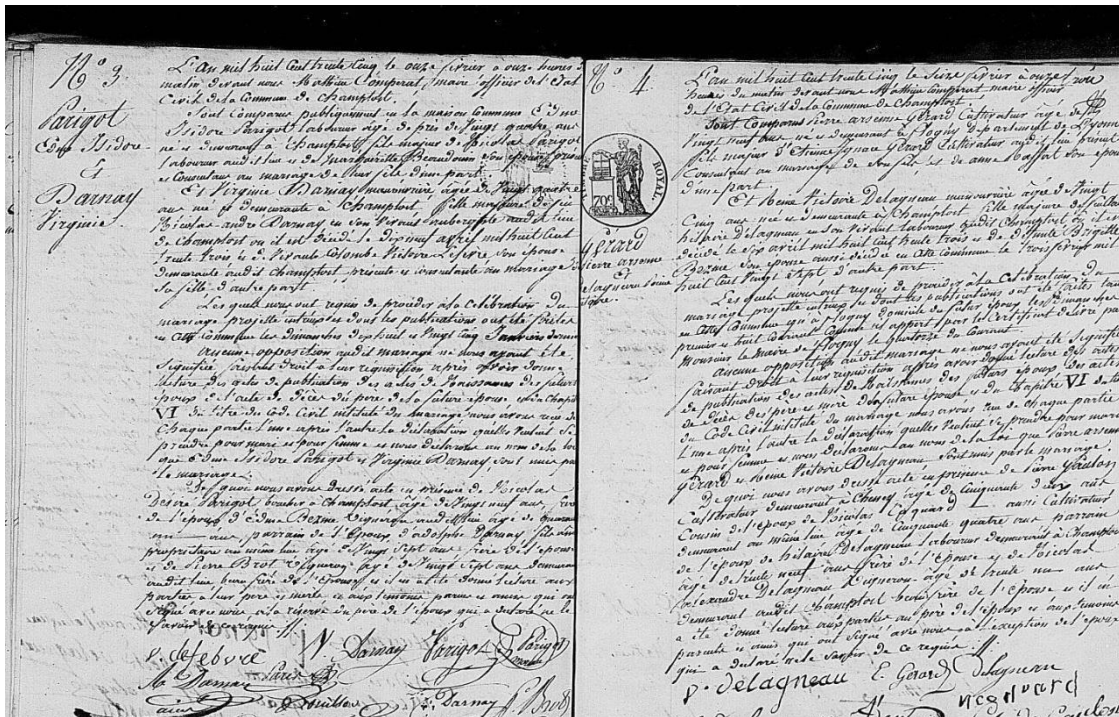 N° 3
Parigot
Edme Isidore
Et
Darnay
Virginie
L'an mil huit cent trente cinq le onze février à onze heures du
matin devant nous Mathieu Comperat, maire officier de l'Etat
Civil de la Commune de Champlost.
Sont Comparus publiquement en la maison commune Edme
Isidore Parigot laboureur âgé de près de vingt quatre ans
né et demeurant à Champlost fils majeur de Nicolas Parigot
laboureur audit lieu et de Marguerite Beaudoin son épouse présens
et Consentans au mariage de leur fils d'une part.
Et Virginie Darnay manouvrière âgée de vingt quatre
ans née et demeurante à Champlost fille majeure de feu
Nicolas andré Darnay en son vivant aubergiste audit lieu
de Champlost où il est décédé le dix neuf avril mil huit Cent
trente trois et de Colombe Victoire Lefevre son épouse
demeurante audit Champlost présente et consentante au mariage de
sa fille d'autre part.
Les quels nous ont requis de procéder à la Célébration du
mariage projetté entr'eux et dont les publications ont été faites
en cette Commune les dimanches dix huit et vingt cinq Janvier dernier
aucune opposition audit mariage ne nous ayant été
signifiée faisant droit à leur requisition après avoir donné
lecture des actes de publication des actes de Naissances des futurs
époux de l'acte de décès du père de la future épouse et du Chapitre
VI du titre du Code Civil intitulé du mariage nous avons reçu de
Chaque partie l'une après l'autre la déclaration qu'elles veulent se
prendre pour mari et pour femme et nous déclarons au nom de la loi
que Edme Isidore Parigot et Virginie Darnay sont unis par
le mariage.
De quoi nous avons dressé acte en présence de Nicolas
Désiré Parigot à Champlost âgé de vingt neuf ans frère
de l'époux d'Edme Bezine vigneron audit lieu âgé de quarante
ans parrain de l'époux d'adolphe Darnay
propriétaire au même lieu âgé de vingt sept ans frère de l'épouse
et de Pierre Brot vigneron âgé de vingt sept ans demeurant
audit lieu beau frère de l'épouse et il en a été donné lecture aux
parties à leur père et mère et aux témoins parens et amis qui ont
signé avec nous à la réserve du père de l'époux qui a déclaré ne le
savoir de ce requis
v. Lefebvre V Darnay Parigot Parigot
Darnay
Darnay P. Brot
N° 4
ROYAL
70c
Gérard
Pierre arsene
Et
Delagneau Reine
Victoire
L'an mil huit cent trente cinq le seize février à onze
heures du matin devant nous Mathieu Comperat maire officier
de l'Etat Civil de la Commune de Champlost.
Sont Comparus Pierre arsene Gérard Cultivateur âgé de
vingt neuf ans né et demeurant à flogny département de l'yonne
fils majeur d'Etienne Ignace Gérard Cultivateur audit lieu présent
Consentant au mariage de son fils et de anne Massol son épouse
d'une part.
Et Reine Victoire Delagneau manouvrière âgée de vingt
Cinq ans née et demeurante à Champlost fille majeure de feu
hilaire Delagneau en son vivant laboureur audit Champlost où il est
décédé le six avril mil huit Cent trente trois et de Brigitte
Bezine son épouse aussi décédée en cette Commune le trois février mil
huit Cent vingt sept d'autre part.
Les quels nous ont requis de procéder à la Célébration du
mariage projetté entr'eux dont les publications ont été faites tant
en cette Commune qu'à flogny domicile du futur époux les dimanches
premier et huit courant comme il appert par le certificat délivré par
Monsieur le Maire de flogny le quatorze du Courant.
aucune opposition audit mariage ne nous ayant été signifiée
faisant droit à leur requisition après avoir donné lecture des actes
de publication des actes de Naissances des futurs époux des actes
de décès des père et mère de la future épouse et du Chapitre VI du titre
du Code Civil intitulé du mariage nous avons reçu de chaque partie
l'une après l'autre la déclaration qu'elles veulent se prendre pour mari
et pour femme et nous déclarons au nom de la loi que Pierre arsene
Gérard et Reine Victoire Delagneau sont unis par le mariage
De quoi nous avons dressé acte en présence de
Cultivateur demeurant à Cheney âgé de Cinquante deux ans
Cousin de l'époux de Nicolas aussi Cultivateur
demeurant au même lieu âgé de Cinquante quatre ans parrain
de l'époux de hilaire Delagneau laboureur demeurant à Champlost
âgé de trente neuf ans frère de l'épouse et de Nicolas
alexandre Delagneau vigneron âgé de trente un ans
demeurant audit Champlost beau frère de l'épouse et il en
a été donné lecture aux parties au père de l'époux et aux témoins
parents et amis qui ont signé avec nous à l'exception de l'épouse
qui a déclaré ne le savoir de ce requise
p. delagneau E. Gerard Delagneau